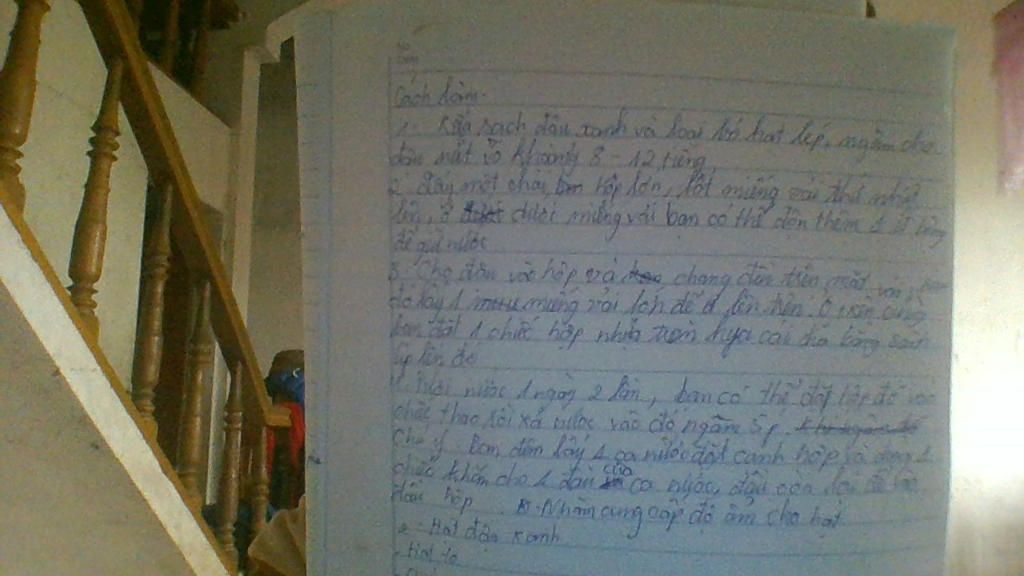 Cách làm.
1. Rửa sạch đậu xanh và loại bỏ hạt lép, ngâm cho
đậu nứt vỏ khoảng 8 - 12 tiếng
2. Lấy một hộp lớn, lót miếng vải thứ nhất
lên, ở dưới miếng vải bạn có thể độn thêm 1 ít bông
để giữ nước
3. Cho đậu vào hộp và chang đều trên mặt vải,
đó lấy 1 miếng vải lớn để lên trên. Ở trên cùng
bạn đặt 1 chiếc hộp nhựa cái đĩa bằng
úp lên đó
4. Tưới nước 1 ngày 2 lần, bạn có thể đặt hộp đó vào
chiếc thao rồi xả nước vào đó ngâm 5p.
Chú ý. Ban đêm lấy 1 ca nước đặt cạnh hộp và dùng 1
chiếc khăn cho 1 đầu của ca nước, đầu còn lại để vào
đậu hộp. Nhằm cung cấp độ ẩm cho hạt
- Hạt đậu xanh